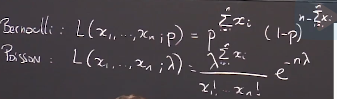 Bernoulli: L(x₁,...,xₙ;p) = p^{∑ⁿ xᵢ} (1-p)^{n-∑ⁿ xᵢ}
Poisson: L(x₁,...,xₙ;λ) = λ^{∑ⁿ xᵢ} / (x₁!...xₙ!) e^{-nλ}